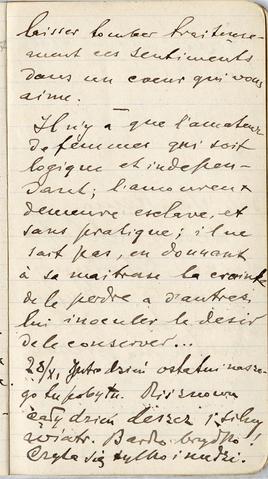 laisser tomber traitreuse-
ment ces sentiments
dans un coeur qui vous
aime.
Il n'y a que l'amateur
de femmes qui soit
logique et indépen-
dant; l'amoureux
demeure esclave, et
sans pratique; il ne
sait pas, en donnant
à sa maitresse la crainte
de le perdre à d'autres,
lui inoculer le désir
de le conserver...
28/X. Jutro dzień ostatni nasze-
go tu pobytu. Dziś znowu
cały dzień deszcz i silny
wiatr. Bardzo brzydko!
Czyta się tylko i nudzi.